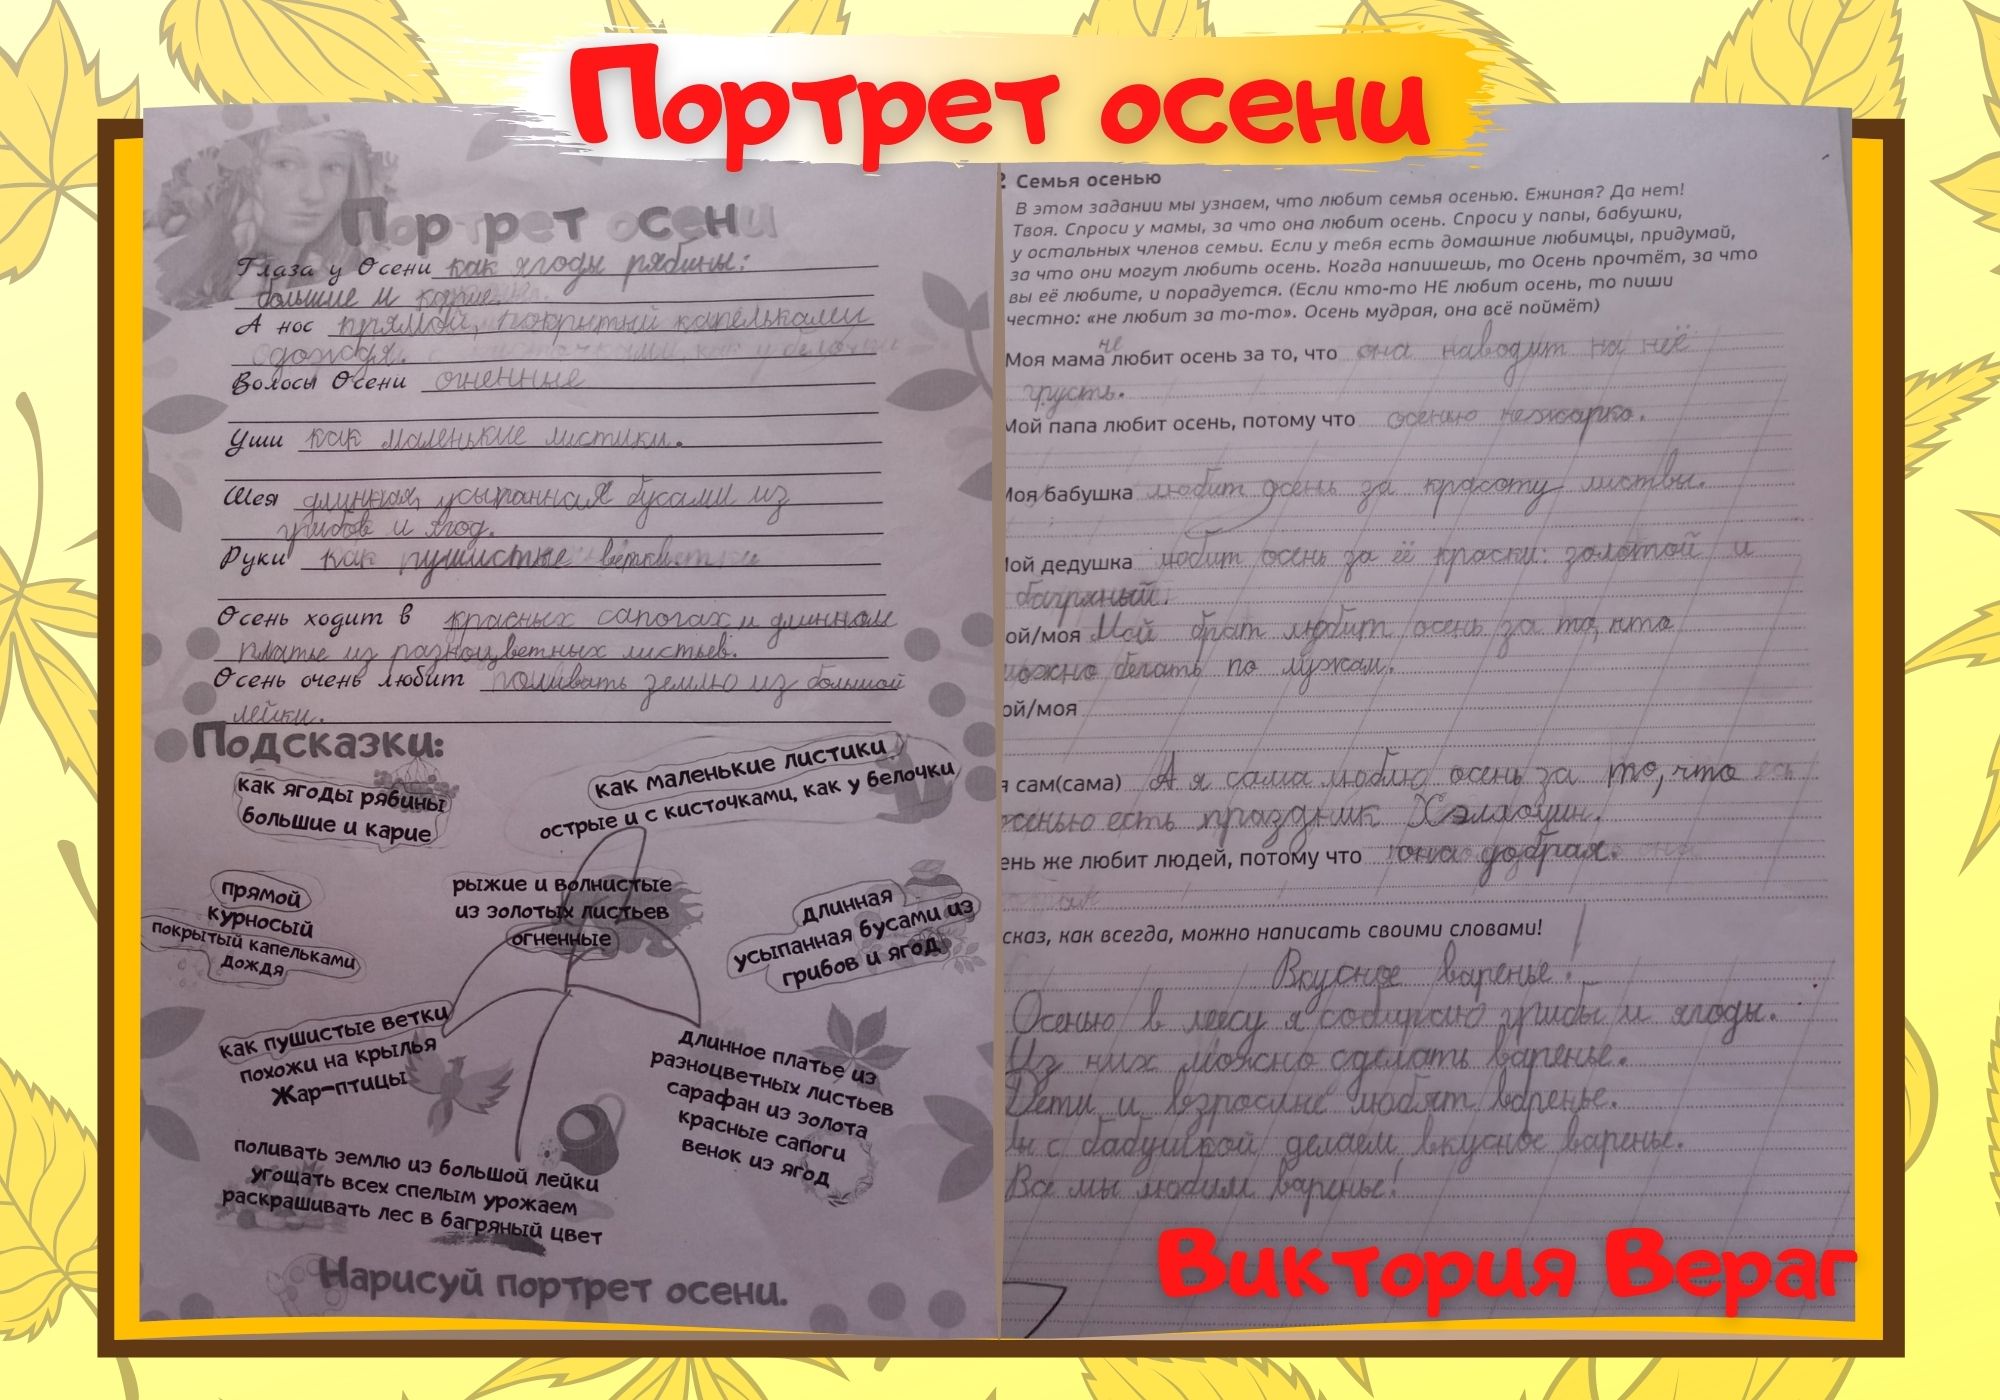 Портрет осени
Портрет осени
Глаза у Осени как ягоды рябины:
большие и карие.
А нос прямой, покрытый капельками
дождя.
Волосы Осени огненные
Уши как маленькие листики.
Шея длинная, усыпанная бусами из
грибов и ягод.
Руки как пушистые ветки
Осень ходит в красных сапогах и длинном
платье из разноцветных листьев.
Осень очень любит поливать землю из большой
лейки.
Подсказки:
как ягоды рябины
большие и карие
как маленькие листики
острые и с кисточками, как у белочки
прямой
курносый
покрытый капельками
дождя
рыжие и волнистые
из золотых листьев
огненные
длинная
усыпанная бусами из
грибов и ягод
как пушистые ветки
похожи на крылья
Жар-птицы
длинное платье из
разноцветных листьев
сарафан из золота
красные сапоги
венок из ягод
поливать землю из большой лейки
угощать всех спелым урожаем
раскрашивать лес в багряный цвет
Нарисуй портрет осени.
Семья осенью
В этом задании мы узнаем, что любит семья осенью. Ежиная? Да нет!
Твоя. Спроси у мамы, за что она любит осень. Спроси у папы, бабушки,
у остальных членов семьи. Если у тебя есть домашние любимцы, придумай,
за что они могут любить осень. Когда напишешь, то Осень прочтёт, за что
вы её любите, и порадуется. (Если кто-то НЕ любит осень, то пиши
честно: «не любит за то-то». Осень мудрая, она всё поймёт)
Моя мама не любит осень за то, что она наводит на неё
грусть.
Мой папа любит осень, потому что осенью нежарко.
Моя бабушка любит осень за красоту листвы.
ой дедушка любит осень за её краски: золотой и
багряный.
ой/моя Мой брат любит осень за то, что
можно бегать по лужам.
ой/моя
я сам(сама) А я сама люблю осень за то, что
осенью есть праздник Хэллоуин.
ень же любит людей, потому что она добрая.
сказ, как всегда, можно написать своими словами!
Вкусное варенье!
Осенью в лесу я собираю грибы и ягоды.
Из них можно сделать варенье.
Дети и взрослые любят варенье.
с бабушкой делаем вкусное варенье.
Все мы любим варенье!
Виктория Вераг